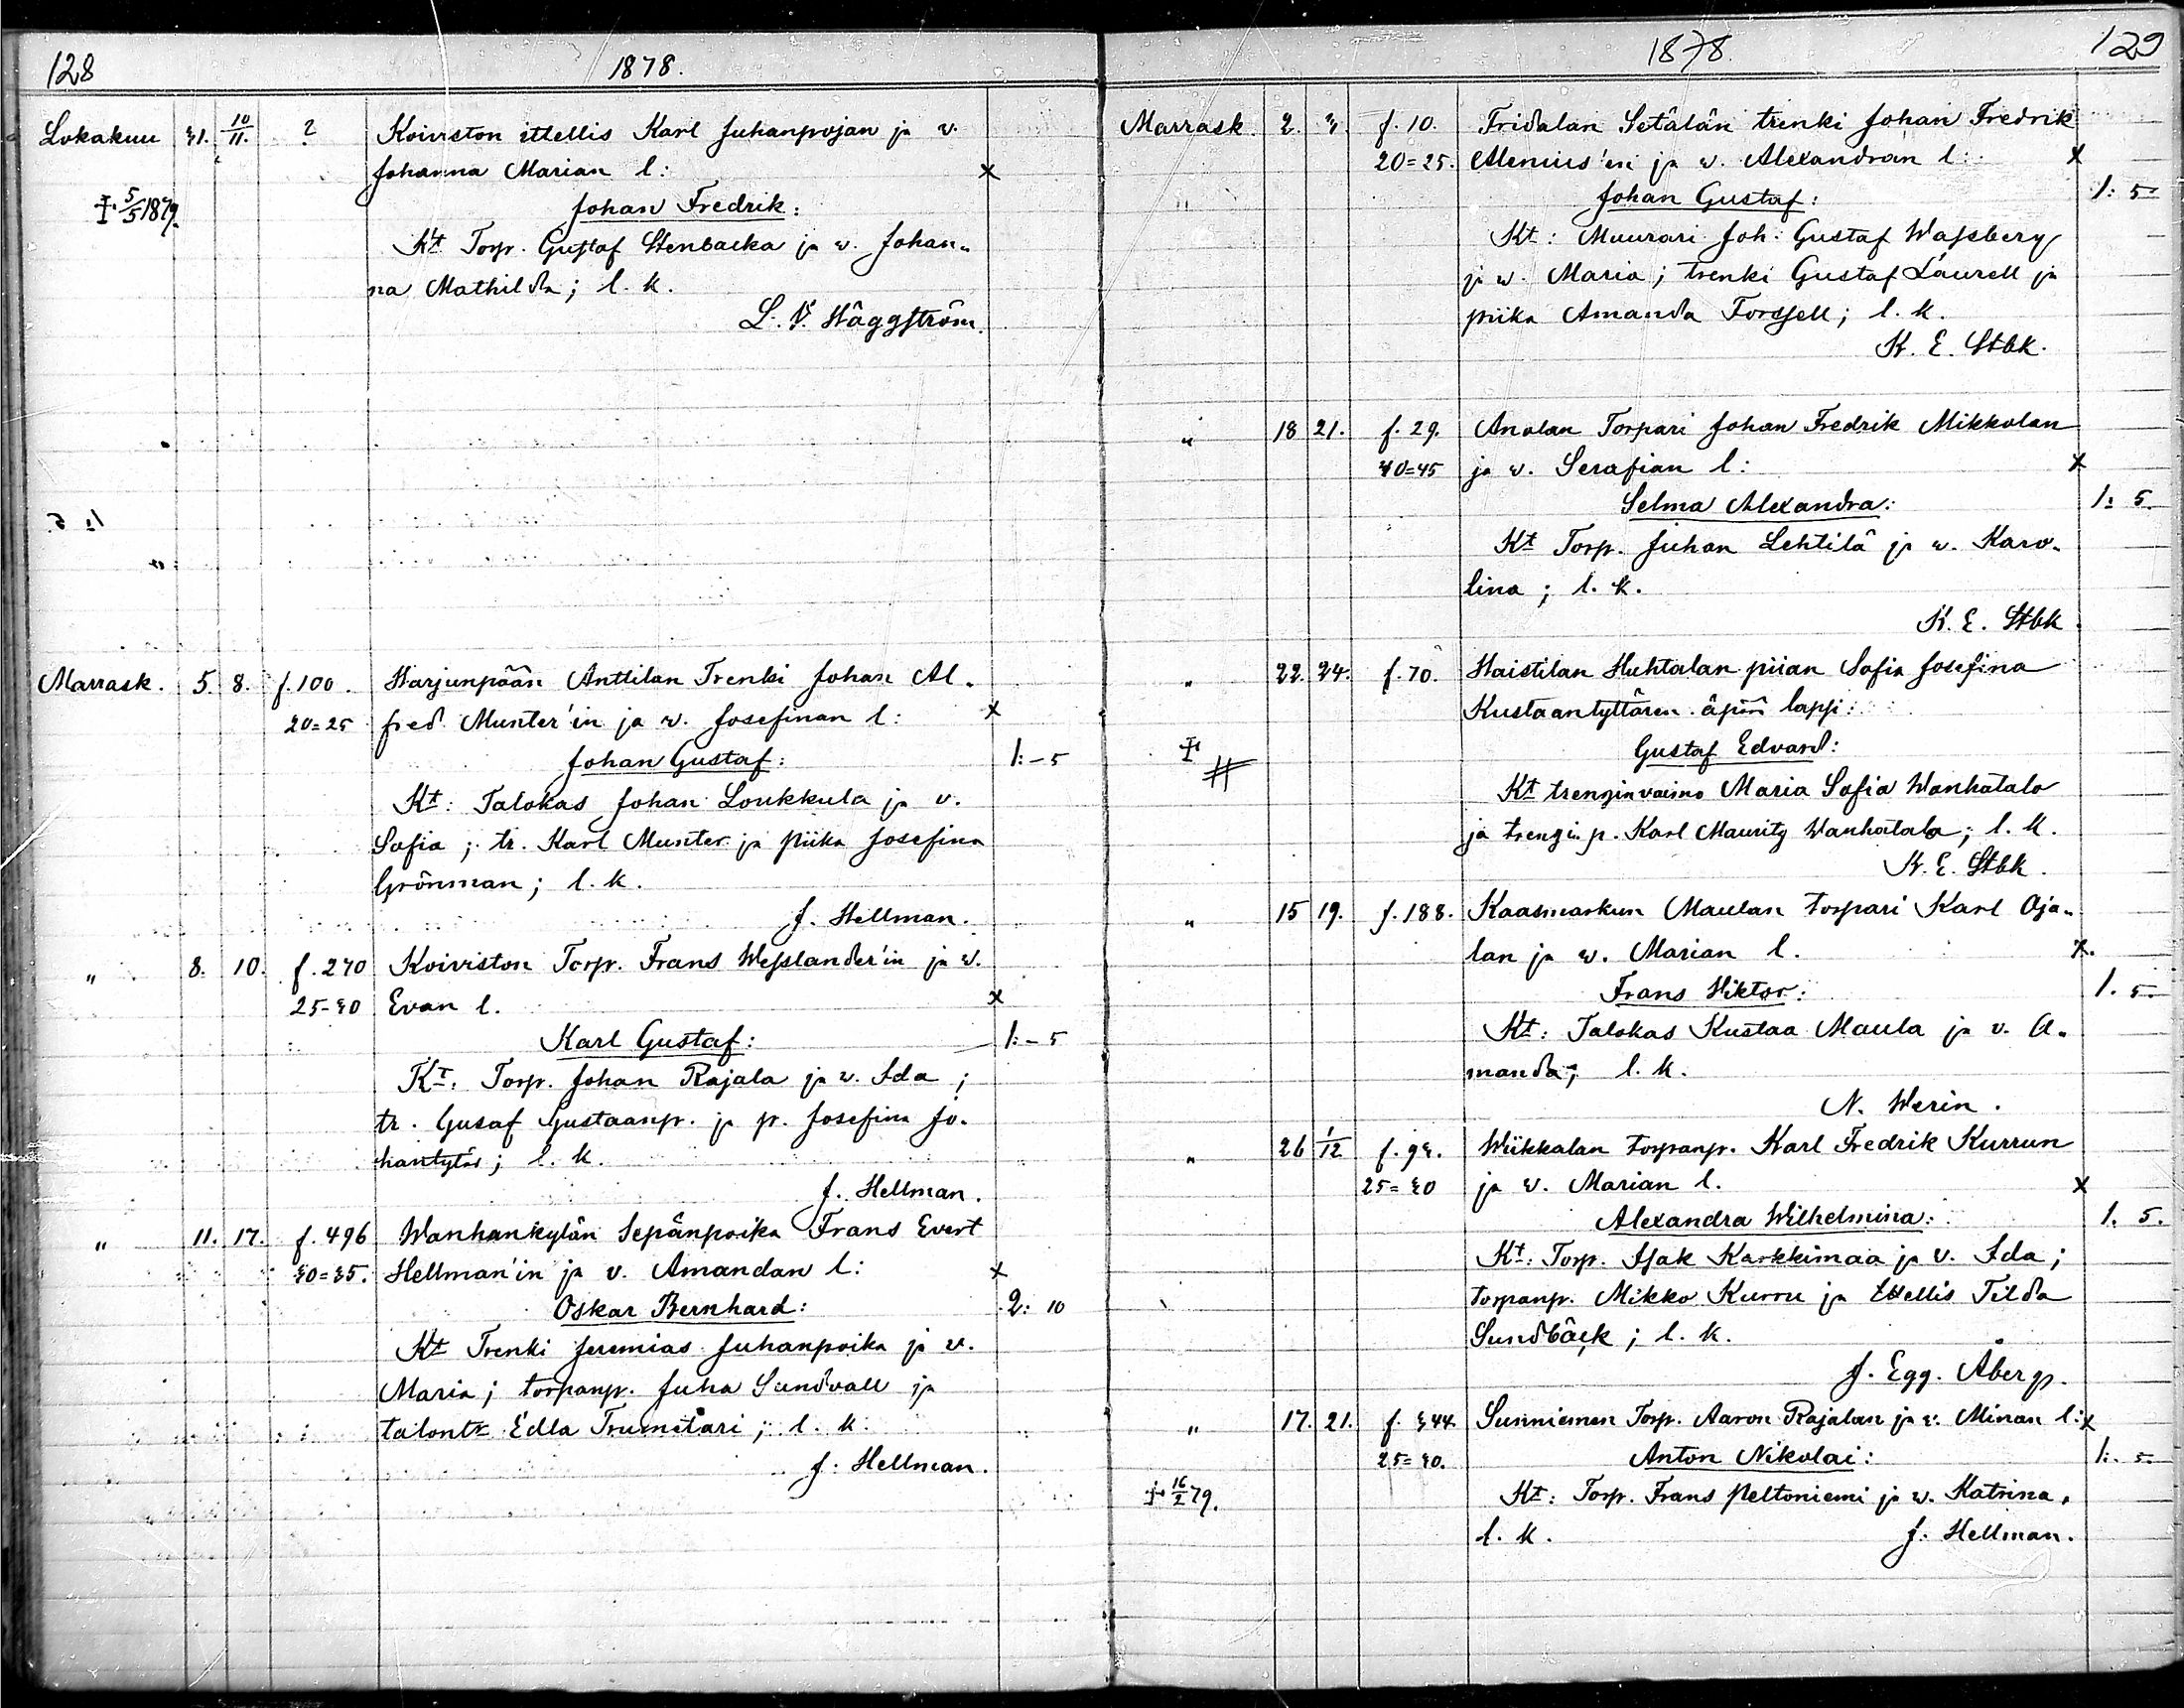 128 1878.
Lokakuu 31. 10/11. ? Koiviston itsellis Karl Juhanpojan ja v.
Johanna Marian l: x
† 5/5 1879. Johan Fredrik:
Kt Torp. Gustaf Stenbacka ja w. Johan„
na Mathilda; l. k.
L. V. Häggström.
Marrask. 5 8. f. 100. Harjunpään Anttilan Trenki Johan Al„
20=25 fred Munter'in ja w. Josefinan l: x
Johan Gustaf: 1:-5
Kt: Talokas Johan Loukkula ja v.
Sofia; tr. Karl Munter ja piika Josefina
Grönman; l. k.
J. Hellman.
„ 8. 10. f. 270 Koiviston Torp. Frans Wesslander'in ja w.
25-30 Evan l. x
Karl Gustaf: 1:-5
Kt. Torp. Johan Rajala ja w. Ida;
tr. Gusaf Gustaanp. ja p. Josefina Jo„
hantytär; l. k.
J. Hellman.
„ 11. 17. f. 496 Wanhankylän Sepänpoika Frans Evert
30=35. Hellman'in ja v. Amandan l: x
Oskar Bernhard: 2: 10
Kt Trenki Jeremias Juhanpoika ja v.
Maria; torpanp. Juha Sundvall ja
talontr Edla Trumetari; l. k.
J. Hellman.
1878. 129
Marrask. 2. 3. f. 10. Fridalan Setälän trenki Johan Fredrik
20=25. Alenius'en ja w. Alexandran l: x
Johan Gustaf: 1: 5
Kt: Muurari Joh: Gustaf Wassberg
ja w. Maria; trenki Gustaf Laurell ja
piika Amanda Forssell; l. k.
K. E. Stbk.
„ 18 21. f. 29. Anolan Torpari Johan Fredrik Mikkolan
40=45 ja w. Serafian l: x
Selma Alexandra: 1: 5.
Kt Torp. Juhan Lehtilä ja w. Karo„
lina; l. k.
K. E. Stbk.
„ 22. 24. f. 70. Haistilan Huhtalan piian Sofia Josefina
Kustaantyttären äpär lapsi:
† # Gustaf Edvard:
Kt trenginvaimo Maria Sofia Wanhatalo
ja trengi p. Karl Mauritz Wanhatalo; l. k.
K. E. Stbk.
„ 15 19. f. 188. Kaasmarkun Maulan torpari Karl Oja„
lan ja w. Marian l. x.
Frans Wiktor: 1. 5.
Kt: Talokas Kustaa Maula ja v. A„
manda; l. k.
N. Werin.
„ 26 1/12 f. 93. Wiikkalan torpanp. Karl Fredrik Kurrun
25=30 ja w. Marian l. x
Alexandra Wilhelmina: 1. 5.
Kt: Torp. Isak Karkkimaa ja v. Ida;
torpanp. Mikko Kurru ja itsellis Tilda
Sundbäck; l. k.
J. Egg. Åberg.
„ 17. 21. f. 344. Sunniemen Torp. Aaron Rajalan ja v. Minan l: x
25=30. Anton Nikolai: 1:. 5.
† 16/2 79. Kt: Torp. Frans Peltoniemi ja w. Katrina.
l. k. J. Hellman.